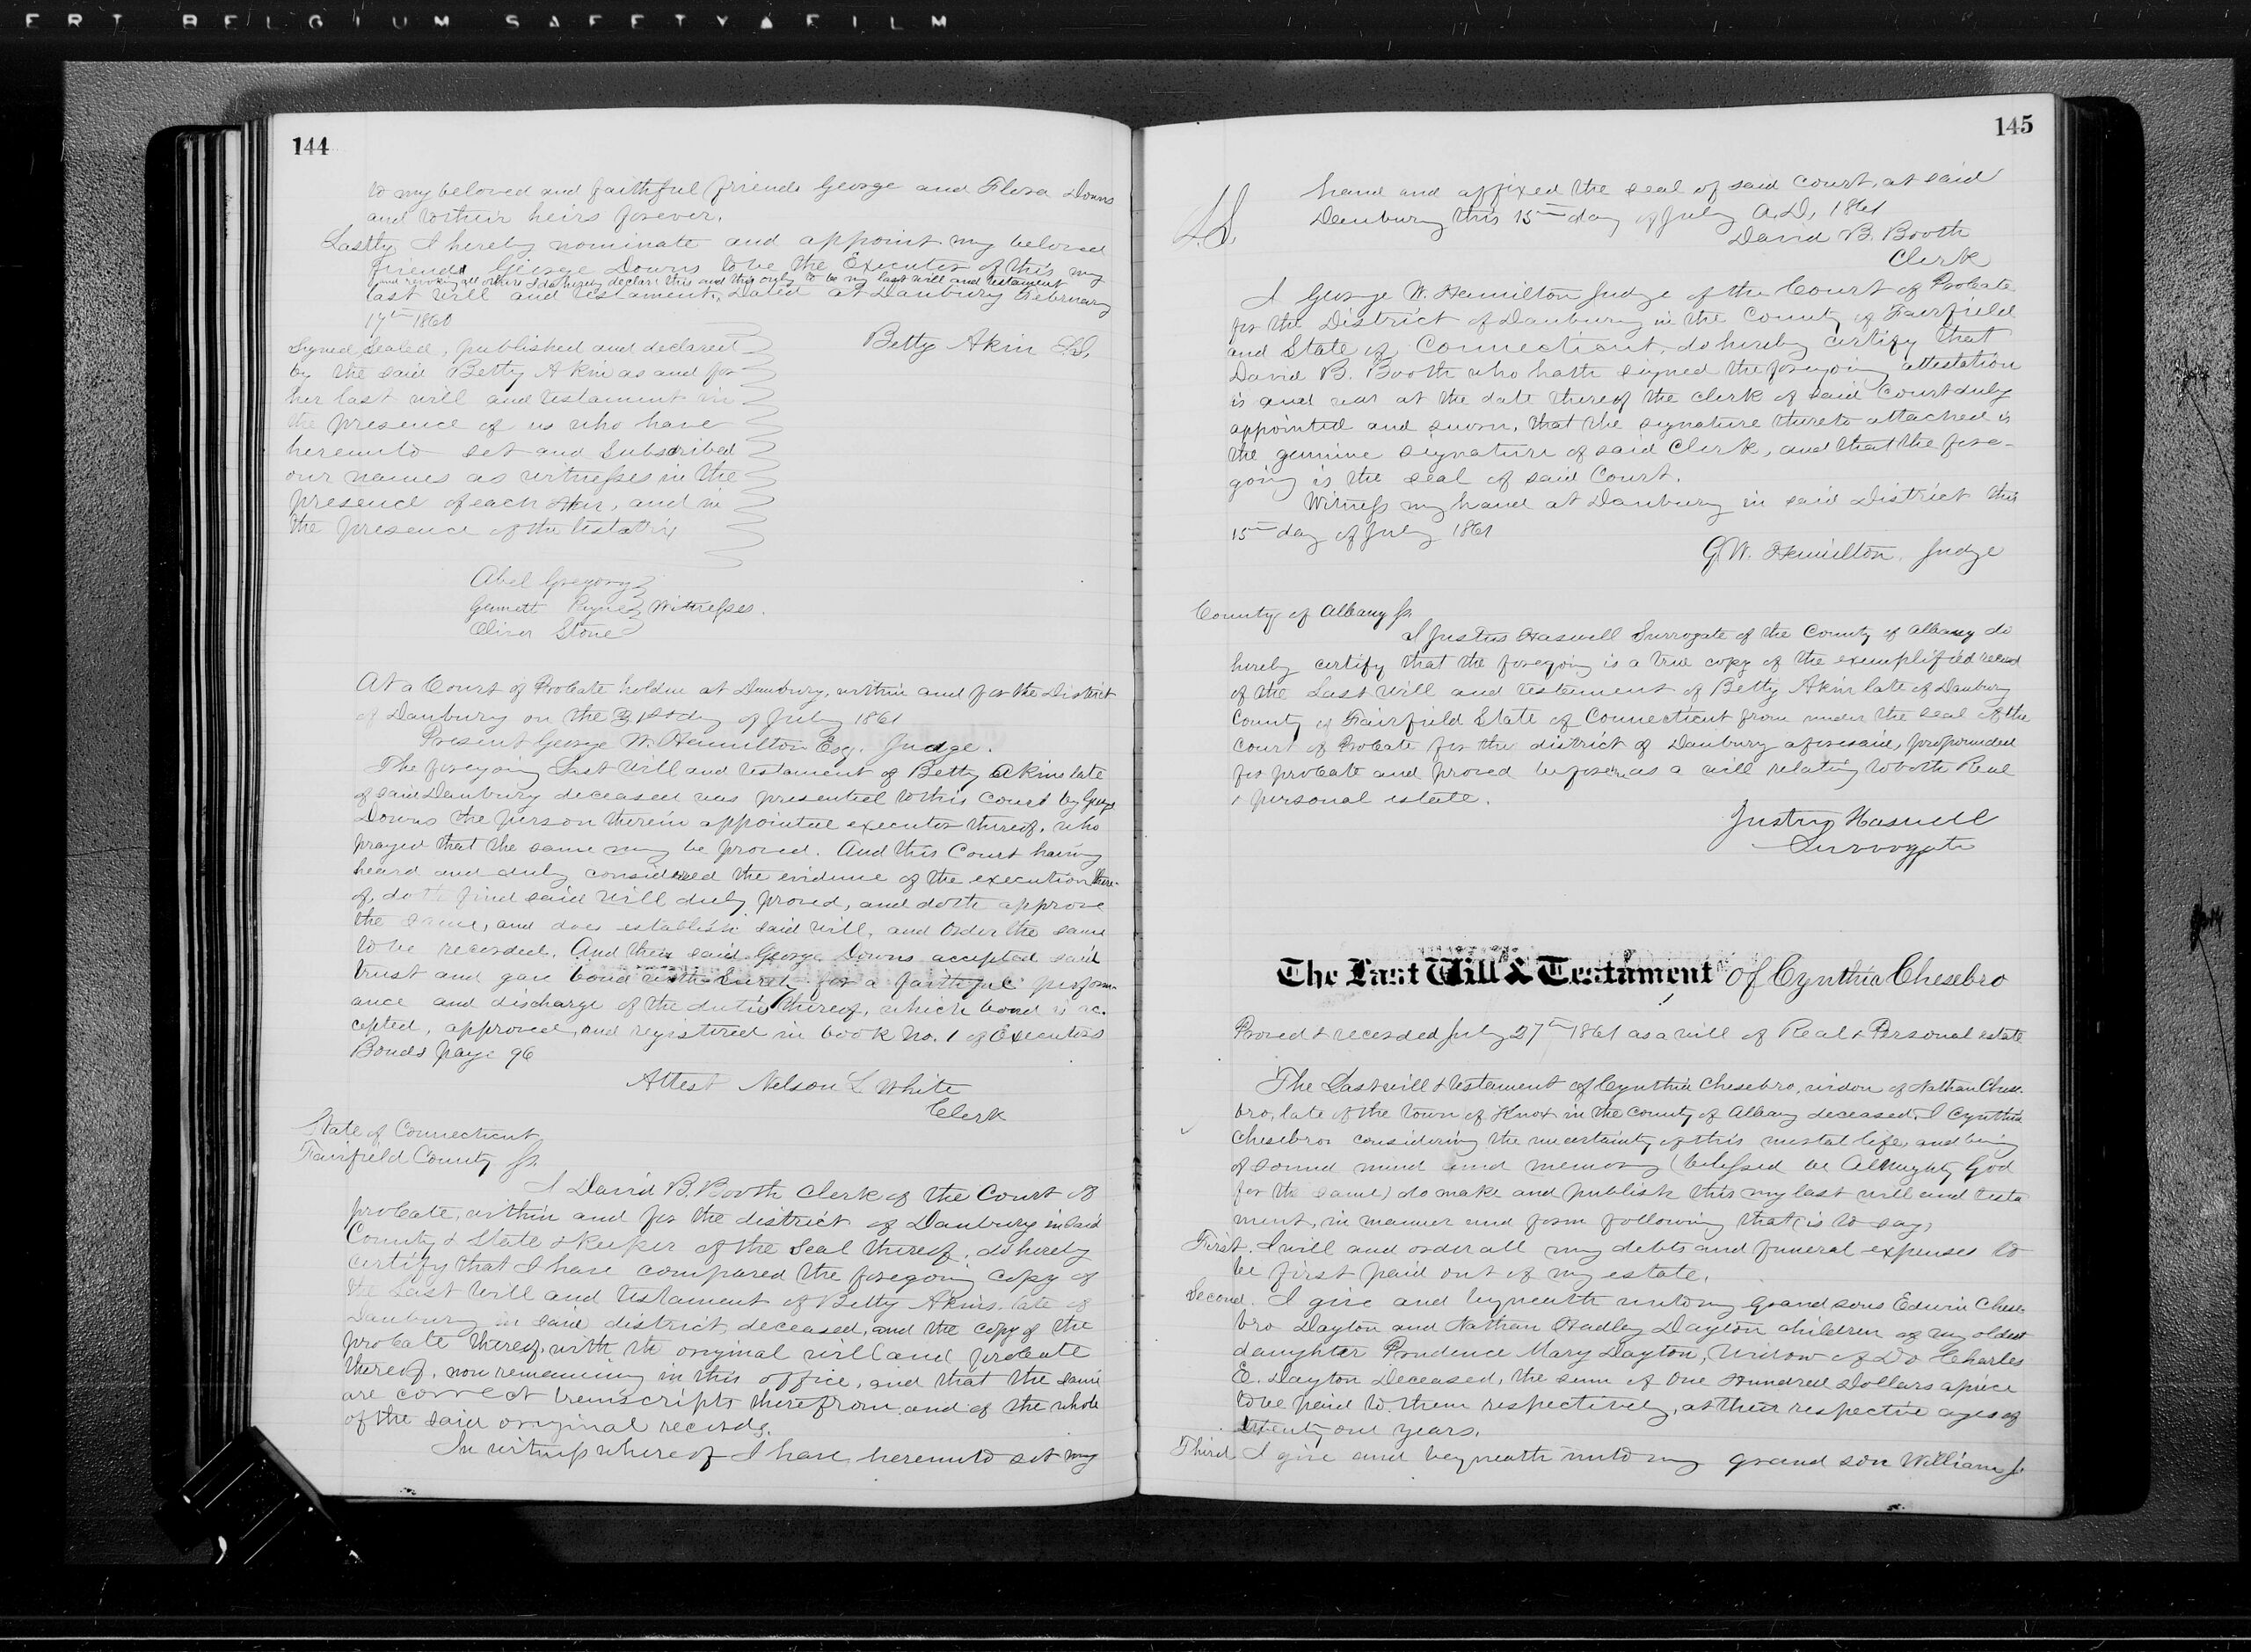 ERT BELGIUM SAFETY▲FILM
144
to my beloved and faithful friends George and Flora Downs
and to their heirs forever.
Lastly I hereby nominate and appoint my beloved
friend George Downs to be the Executor of this my
and revoking all others I do hereby declare this and this only to be my last will and testament
last will and testament. Dated at Danbury February
17th 1860
Betty Akin L.S.
Signed, Sealed, published and declared
by the said Betty Akin as and for
her last will and testament in
the presence of us who have
hereunto set and Subscribed
our names as witnesses in the
presence of each other, and in
the presence of the testatrix
Abel Gregory
Payne Witnesses.
Oliver Stone
At a Court of Probate holden at Danbury, within and for the District
of Danbury on the 31st day of July 1861
Present George W. Hamilton Esq. Judge.
The foregoing Last Will and testament of Betty Akins late
of said Danbury deceased was presented to this Court by George
Downs the person therein appointed executor thereof, who
prayed that the same may be proved. And this Court having
heard and duly considered the evidence of the execution there-
of, doth find said will duly proved, and doth approve
the same, and does establish said will, and order the same
to be recorded. And then said George Downs accepted said
trust and gave bond with Surety for a faithful perform-
ance and discharge of the duties thereof, which bond is ac-
cepted, approved, and registered in book No. 1 of Executors
Bonds page 96
Attest Nelson L White
Clerk
State of Connecticut
Fairfield County Ss.
I David B. Booth Clerk of the Court of
probate, within and for the district of Danbury in said
County & State & keeper of the Seal thereof, do hereby
certify that I have compared the foregoing copy of
the Last Will and testament of Betty Akins late of
Danbury in said district, deceased, and the copy of the
probate thereof, with the original will and probate
thereof, now remaining in this office, and that the same
are correct transcripts therefrom and of the whole
of the said original records.
In witness whereof I have hereunto set my
145
L.S.
hand and affixed the seal of said court, at said
Danbury this 15th day of July A.D. 1861
David B. Booth
Clerk
I George W. Hamilton Judge of the Court of Probate
for the District of Danbury in the County of Fairfield
and State of Connecticut, do hereby certify that
David B. Booth who hath signed the foregoing attestation
is and was at the date thereof the clerk of said Court duly
appointed and sworn, that the signature thereto attached is
the genuine signature of said Clerk, and that the fore-
going is the seal of said Court.
Witness my hand at Danbury in said District this
15th day of July 1861
G.W. Hamilton Judge
County of Albany Ss.
I Justus Haswell Surrogate of the County of Albany do
hereby certify that the foregoing is a true copy of the exemplified record
of the Last will and testament of Betty Akin late of Danbury
County of Fairfield State of Connecticut from under the seal of the
Court of Probate for the district of Danbury aforesaid, propounded
for probate and proved before me as a will relating to both Real
& personal estate.
Justus Haswell
Surrogate
The Last Will & Testament of Cynthia Chesebro
Proved & recorded July 27th 1861 as a will of Real & Personal estate
The Last will & testament of Cynthia Chesebro, widow of Nathan Chese-
bro, late of the town of Knox in the County of Albany deceased. I Cynthia
Chesebro considering the uncertainty of this mortal life, and being
of sound mind and memory (blessed be Almighty God
for the same) do make and publish this my last will and testa
ment, in manner and form following that is to say,
First. I will and order all my debts and funeral expenses to
be first paid out of my estate.
Second. I give and bequeath unto my grand sons Edwin Chese-
bro Dayton and Nathan Hadley Dayton children of my oldest
daughter Prudence Mary Dayton, Widow of Dr Charles
E. Dayton Deceased, the sum of One Hundred Dollars apiece
to be paid to them respectively, at their respective ages of
twenty one years.
Third I give and bequeath unto my grand son William J.